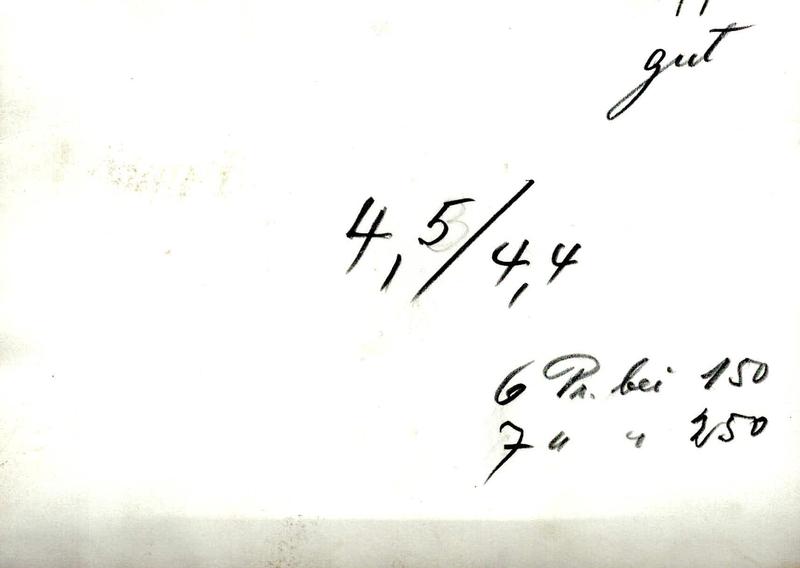 gut
4,5/4,4
6 Pr. bei 150
7 " " 250